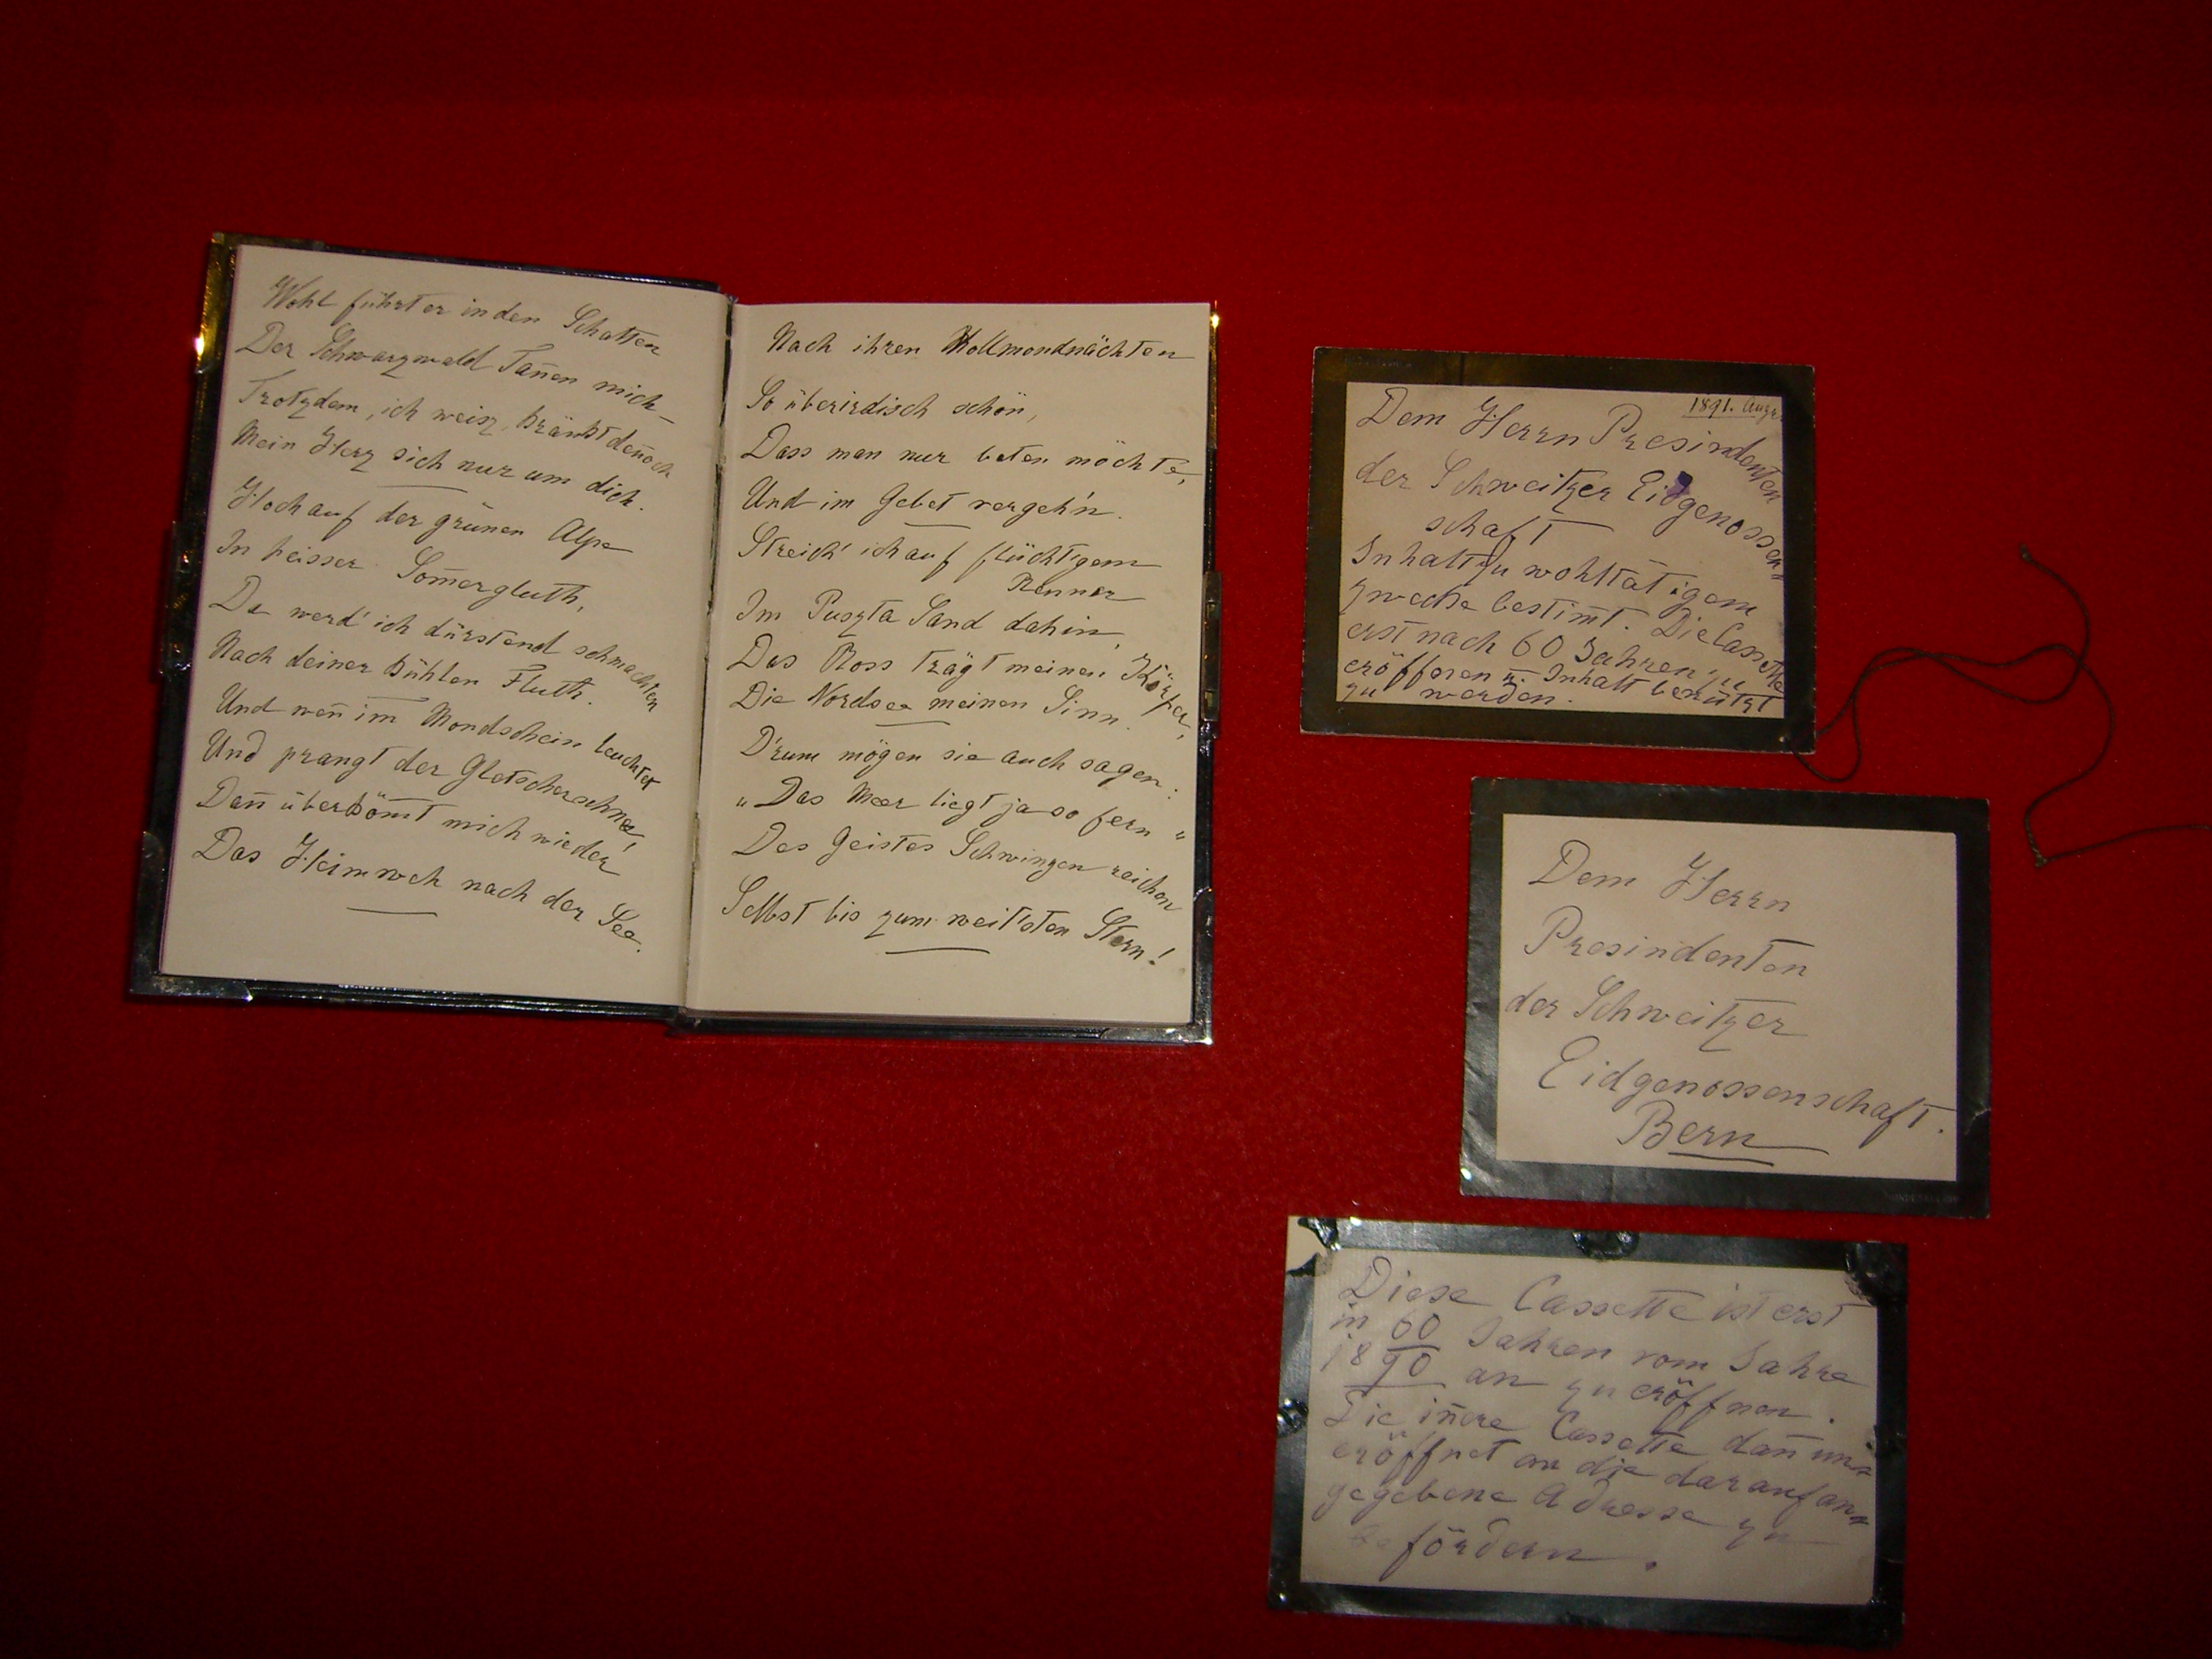 Wohl führt er in den Schatten
Der Schwarzwald Tan̄en mich
Trotzdem, ich weisz, kränkt den̄och
Mein Herz sich nur um dich.
Hoch auf der grünen Alpe
In heisser Som̄ergluth,
Da werd' ich dürstend schmachten
Nach deiner kühlen Fluth.
Und wen̄ im Mondschein leuchtet
Und prangt der Gletscherschnee,
Dan̄ überköm̄t mich wieder
Das Heimweh nach der See.
Nach ihren Vollmondnächten
So überirdisch schön,
Dass man nur beten möchte,
Und im Gebet vergeh'n.
Streich' ich auf flücht'gem
Renner
Im Puszta Sand dahin,
Das Ross trägt meinen Körper,
Die Nordsee meinen Sinn.
D'rum mögen sie auch sagen:
„Das Meer liegt ja so fern"
Des Geistes Schwingen reichen
Selbst bis zum weit'sten Stern!
1891. Aug
Dem Herrn Presindenten
der Schweitzer Eidgenossen-
schaft
Inhalt zu wohltätigem
Zwecke bestim̄t. Die Cassette
erst nach 60 Jahren zu
eröffnen u. Inhalt benützt
zu werden.
Dem Herrn
Presindenten
der Schweitzer
Eidgenossenschaft.
Bern
Diese Cassette ist erst
in 60 Jahren vom Jahre
1890 an zu eröffnen.
Die in̄ere Cassette dan̄ un-
eröffnet an die darauf an-
gegebene Adresse zu
befördern.